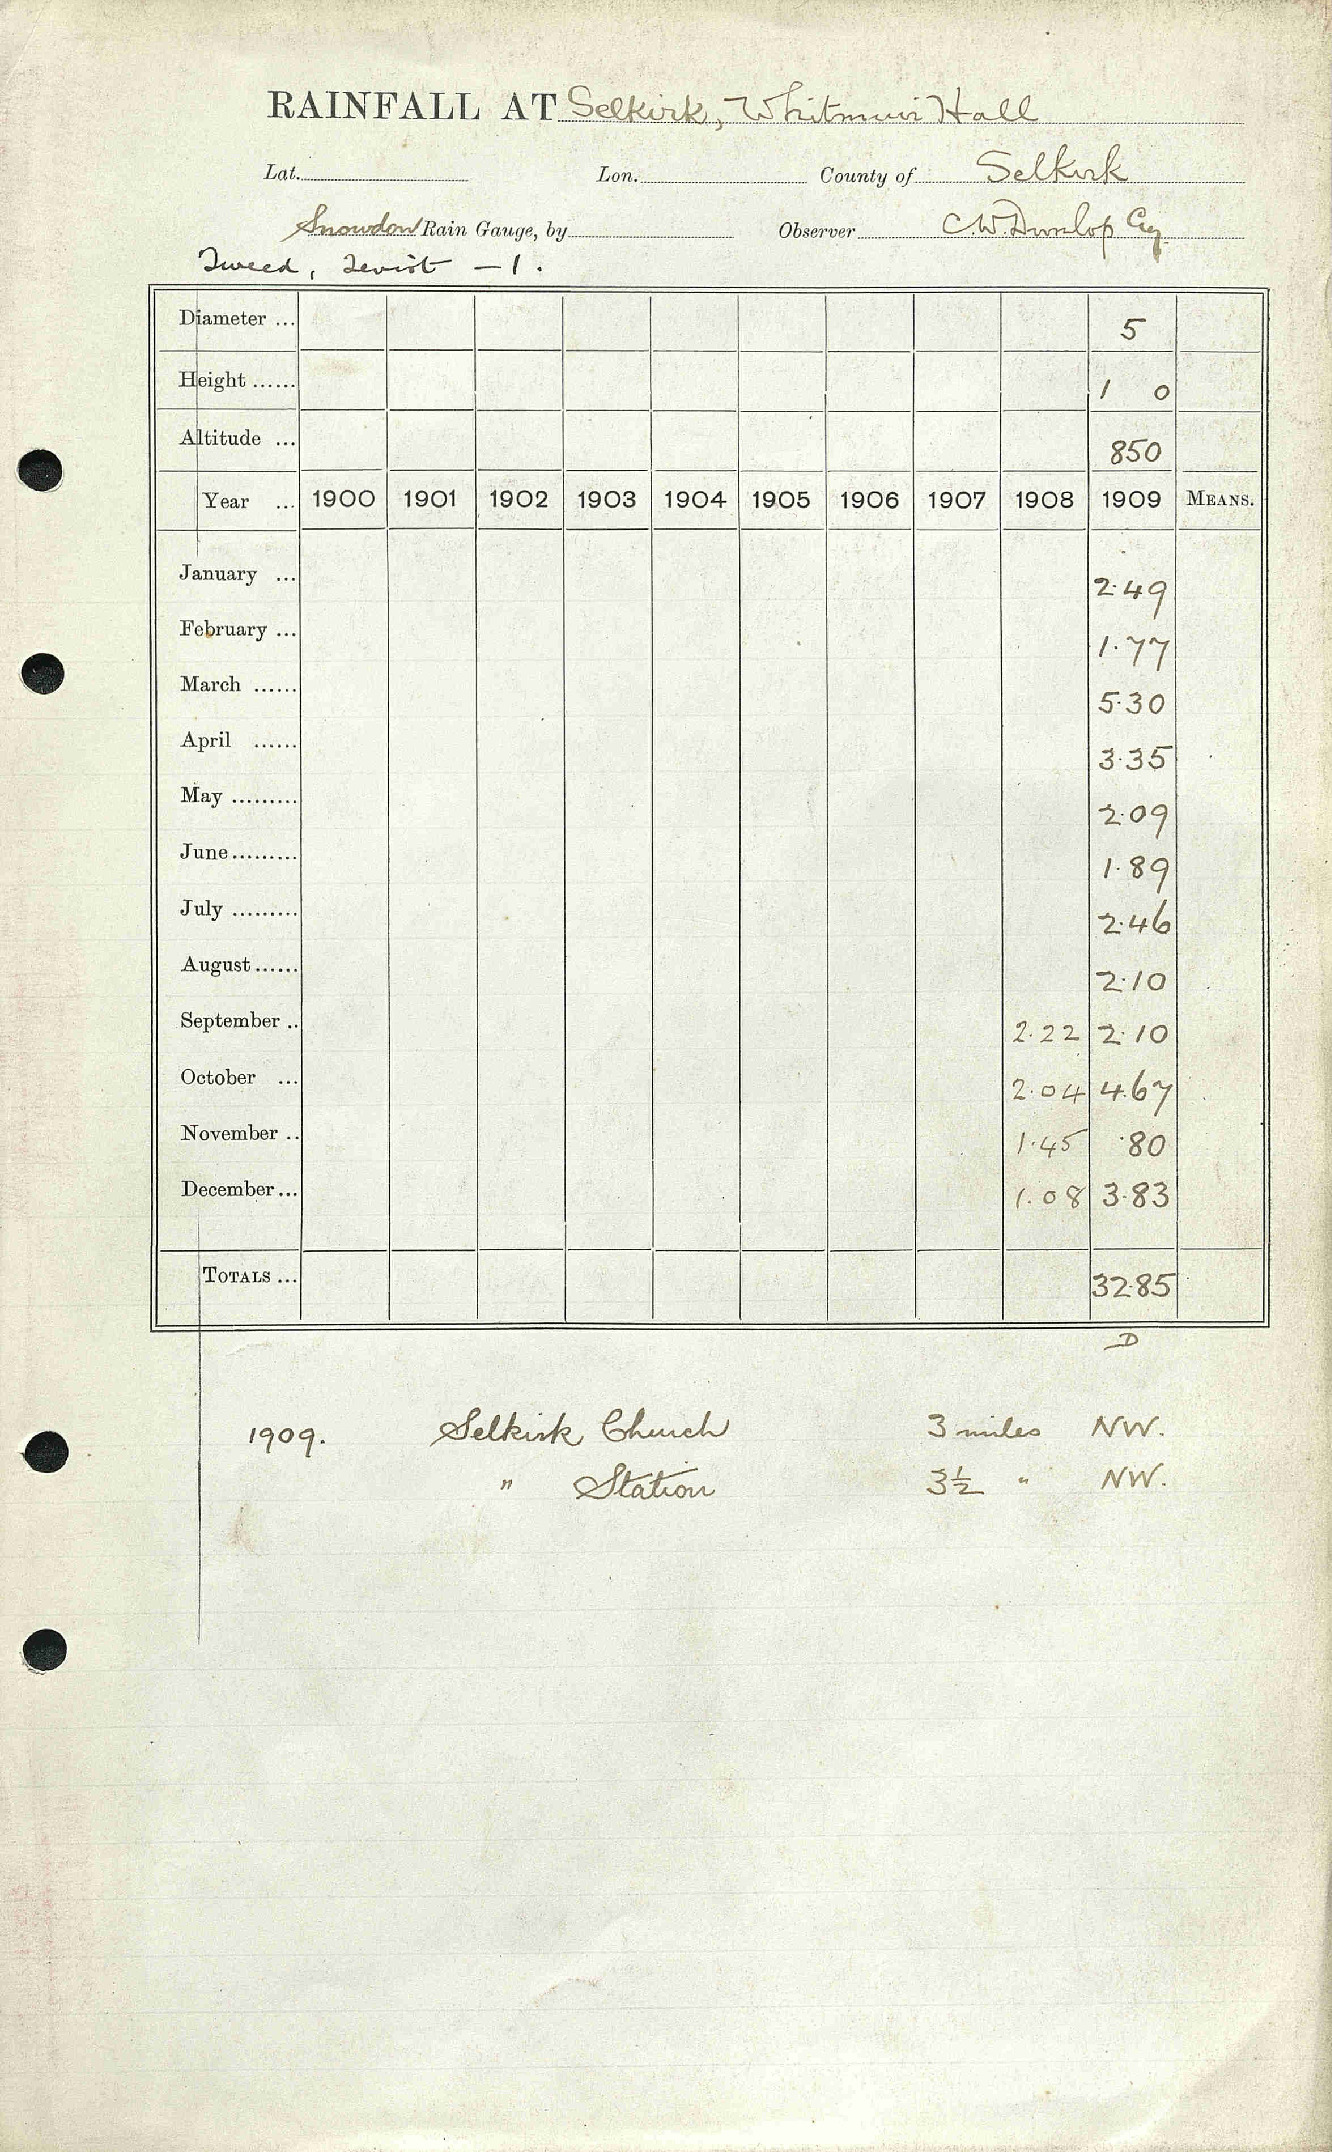 RAINFALL AT Selkirk, Whitmuir Hall
Lat. Lon. County of Selkirk
Snowdon Rain Gauge, by Observer C.W. Dunlop Esq
Tweed, Teviot - 1.
Diameter ... 5
Height ...... 1 0
Altitude ... 850
Year ... 1900 1901 1902 1903 1904 1905 1906 1907 1908 1909 MEANS.
January ... 2.49
February ... 1.77
March ...... 5.30
April ...... 3.35
May ......... 2.09
June......... 1.89
July ......... 2.46
August...... 2.10
September .. 2.22 2.10
October ... 2.04 4.67
November .. 1.45 .80
December... 1.08 3.83
TOTALS ... 32.85
D
1909. Selkirk Church 3 miles NW.
" Station 3½ " NW.